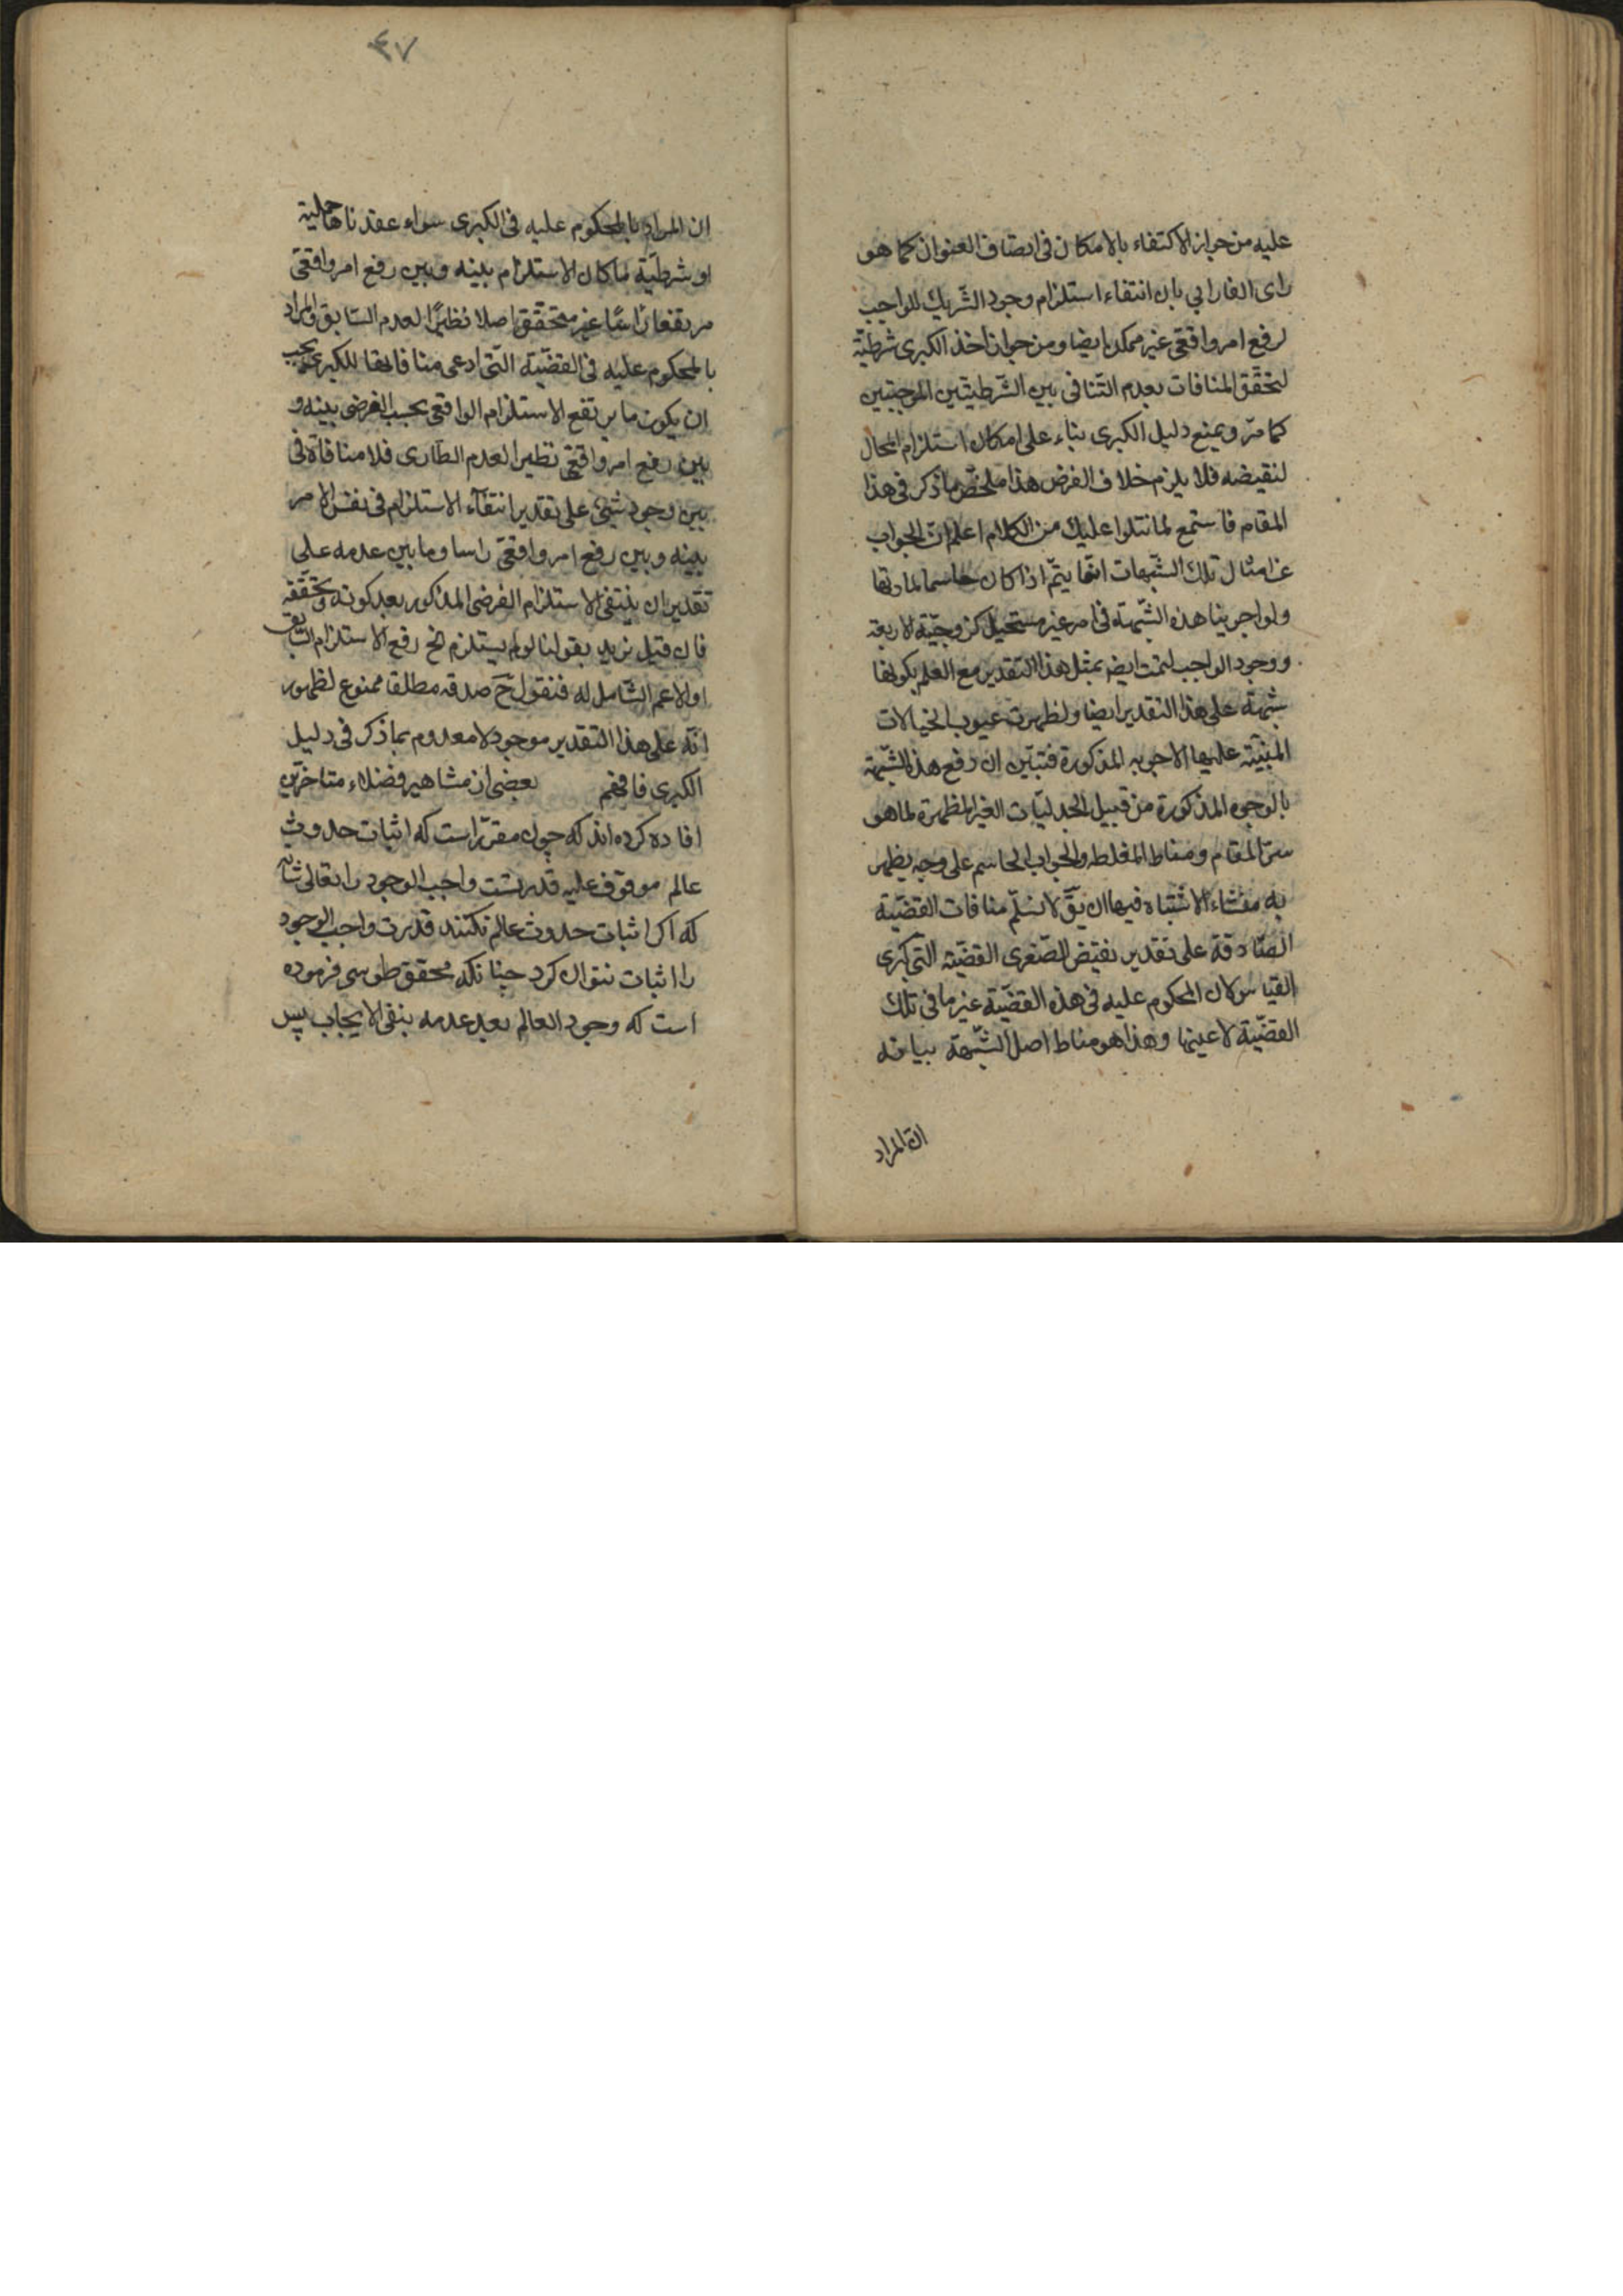 عليه من جواز الاكتفاء بالامكان فى اتصاف العنوان كما هو
راى الفارابي بان انتفاء استلزام وجود الشّريك للواجب
لرفع امر واقعّى غير ممكن ايضا ومن جواز اخذ الكبرى شرطيّة
لتحقّق المنافات بعدم التّنافى بين الشّرطيتين الموجبتين
كما مرّ ويمنع دليل الكبرى بناء على امكان استلزام المحال
لنقيضه فلا يلزم خلاف الفرض هذا ملخّص ما ذكر فى هذا
المقام فاستمع لما نتلوا عليك من الكلام اعلم انّ الجواب
عن امثال تلك الشّبهات انّما يتمّ اذا كان حاسما لمادتها
ولو اجرينا هذه الشّبهة فى امر غير مستحيل كزوجيّة الاربعة
ووجود الواجب لتمت ايضا بمثل هذا التقدير مع العلم بكونها
شبهة على هذا التقدير ايضا ولظهرت عيوب الخيالات
المبنيّة عليها الاجوبه المذكورة فتبيّن ان رفع هذه الشّبهة
بالوجوه المذكورة من قبيل الجدليّات الغير المظهرة لما هو
سرّ المقام ومناط المغلطه والجواب الحاسم على وجه يظهر
به منشاء الاشتباه فيها ان يقّ لا نسلّم منافات القضيّة
الصّادقة على تقدير نقيض الصّغرى القضيّة التّى كبرى
القياس لان المحكوم عليه فى هذه القضيّة غير ما فى تلك
القضيّة لا عينها وهذا هو مناط اصل الشّبهة بيانه
ان المراد
٤٧
ان المراد بالمحكوم عليه فى الكبرى سواء عقدناها حملية
او شرطيّة ما كان الاستلزام بينه وبين رفع امر واقعّى
مرتفعا راسًا غير متحقّق اصلا نظيرًا لعدم السّابق والمراد
بالمحكوم عليه فى القضيّة التّى ادعى منافاتها للكبرى يجب
ان يكون ما يرتفع الاستلزام الواقعى بحسب الفرض بينه و
بين رفع امر واقعّى نظير العدم الطّارى فلا منافاة فى
بين وجود شئ على تقدير انتفآء الاستلزام فى نفس الامر
بينه وبين رفع امر واقعّى راسا وما بين عدمه على
تقدير ان ينتفى الاستلزام الفرضى المذكور بعد كونه وتحقّقه
فان قيل نريد بقولنا لو لم يستلزم الخ رفع الاستلزام السّابق
او الاعم الشّامل له فنقول حَ صدقه مطلقا ممنوع لظهور
انّه على هذا التقدير موجود لا معدوم بما ذكر فى دليل
الكبرى فافهم بعضى از مشاهير فضلاء متاخرّين
افاده كرده اند كه چون مقرّر است كه اثبات حدوث
عالم موقوف عليه قدرتست واجب الوجود را تعالى شانه
كه اكر اثبات حدوث عالم نكنند قدرت واجب الوجود
را اثبات نتوان كرد چنانكه محقق طوسى فرموده
است كه وجود العالم بعد عدمه ينفى الايجاب پس